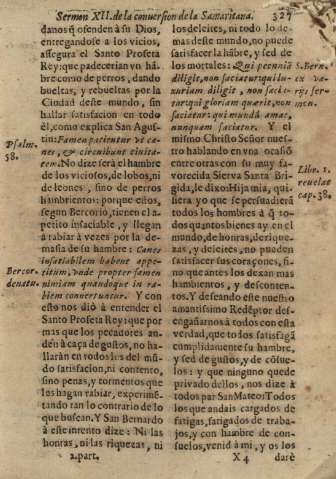 Sermon XII. de la conuersion de la Samaritana. 327
danos q̃ ofenden à su Dios,
entregandose a lo vicios,
assegura el Santo Profeta
Rey: que padecerian vn hã-
bre como de perros, dando
bueltas, y rebueltas por la
Ciudad deste mundo, sin
hallar satisfacion en todo
èl, como explica San Agus-
tin: Famem patientur vt ca-
nes, & circuibunt ciuita-
tem. No dize serà el hambre
de los viciosos, de lobos, ni
de leones, sino de perros
hambrientos: porque ellos,
segun Bercorio, tienen el a-
petito insaciable, y llegan
à rabiar à vezes por la de-
masia de su hambre: Canes
insatiabilem habent appe-
titum, vnde propter famem
nimiam quandoque in ra-
biem conuertuntur. Y con
esto nos diò à entender el
Santo Profeta Rey: que por
mas que los pecadores an-
den à caça de gustos, no ha-
llaràn en todos los del mũ-
do satisfacion, ni contento,
sino penas, y tormentos que
los hagan rabiar, experimẽ-
tando tan lo contrario de lo
que buscan. Y San Bernardo
à este intento dize: Ni las
honras, ni las riquezas, ni
2. part.
Psalm.
58.
Bercor.
denatu.
los deleites, ni todo lo de-
mas deste mundo, no puede
satisfacer la hãbre, y sed de
los mortales: Qui pecunia
diligit, non saciatur qui lu-
xuriam diligit, non sacie-
tur qui gloriam quærit, non
saciatur: qui mundũ amat,
nunquam saciatur. Y el
mismo Christo Señor nues-
tro hablando en vna ocasiõ
entre otras con su muy fa-
vorecida Sierva Santa Bri-
gida, le dixo: Hija mia, qui-
siera yo que se persuadierã
todos los hombres à q̃ to-
dos quantos bienes ay en el
mundo, de honras, de rique-
zas, y deleites, no pueden
satisfacer sus coraçones, si-
no que antes los dexan mas
hambrientos, y desconten-
tos. Y deseando este nuestro
amantissimo Redẽptor des-
engañarnos à todos con esta
verdad, que to los satisfaga
cumplidamente su hambre,
y sed de gustos, y de cõsue-
los: y que ninguno quede
privado dellos, nos dize à
todos por San Mateos Todos
los que andais cargados de
fatigas, fatigados de traba-
jos, y con hambre de con-
suelos, venid à mi, y os los
X 4 darè
S. Bern.
Libr. 1.
reuelat
cap. 38.